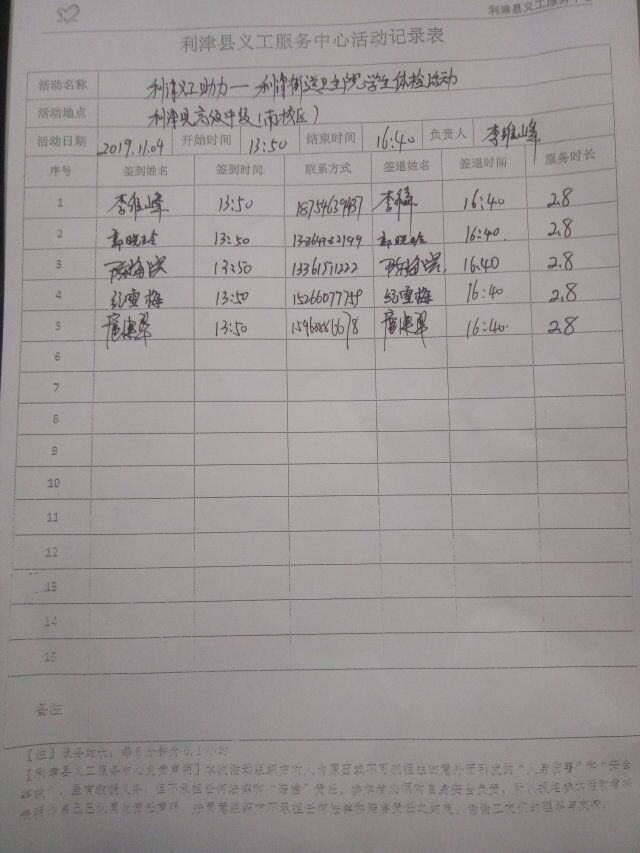 利津县义工服务中心
利津县义工服务中心活动记录表
活动名称 利津义工助力——利津街道卫生院学生体检活动
活动地点 利津县高级中级(南校区)
活动日期 2019.11.04 开始时间 13:50 结束时间 16:40 负责人 李维峰
序号 签到姓名 签到时间 联系方式 签退姓名 签退时间 服务时长
1 李维峰 13:50 18754639437 16:40 2.8
2 13:50 16:40 2.8
3 13:50 13361571222 16:40 2.8
4 纪雪梅 13:50 15266077759 纪雪梅 16:40 2.8
5 13:50 16:40 2.8
6
7
8
9
10
11
12
13
14
15
备注
【注】服务时长:每6分钟为0.1小时
【利津县义工服务中心免责声明】本次活动组织方对人为原因或不可抗拒性的意外而引发的“人身伤害”和“安全
事故”，虽有救援义务，但不承担任何法律和“赔偿”责任，参加者必须对自身安全负责，所以报名参加活动者均
责任声明，并同意组织方不承担任何法律和赔偿责任之约定。谢谢工友们的理解与支持！